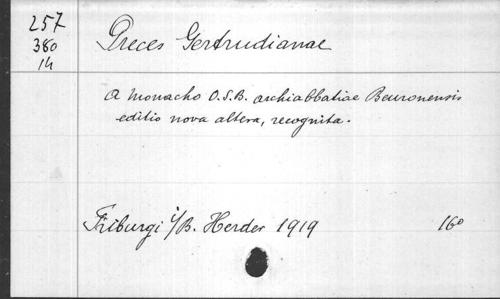 257
380
14
Preces Gertrudianae
a monacho O.S.B. archiabbatiae Beuronensis
editio nova altera, recognita.
Friburgi i/B. Herder 1919 16°